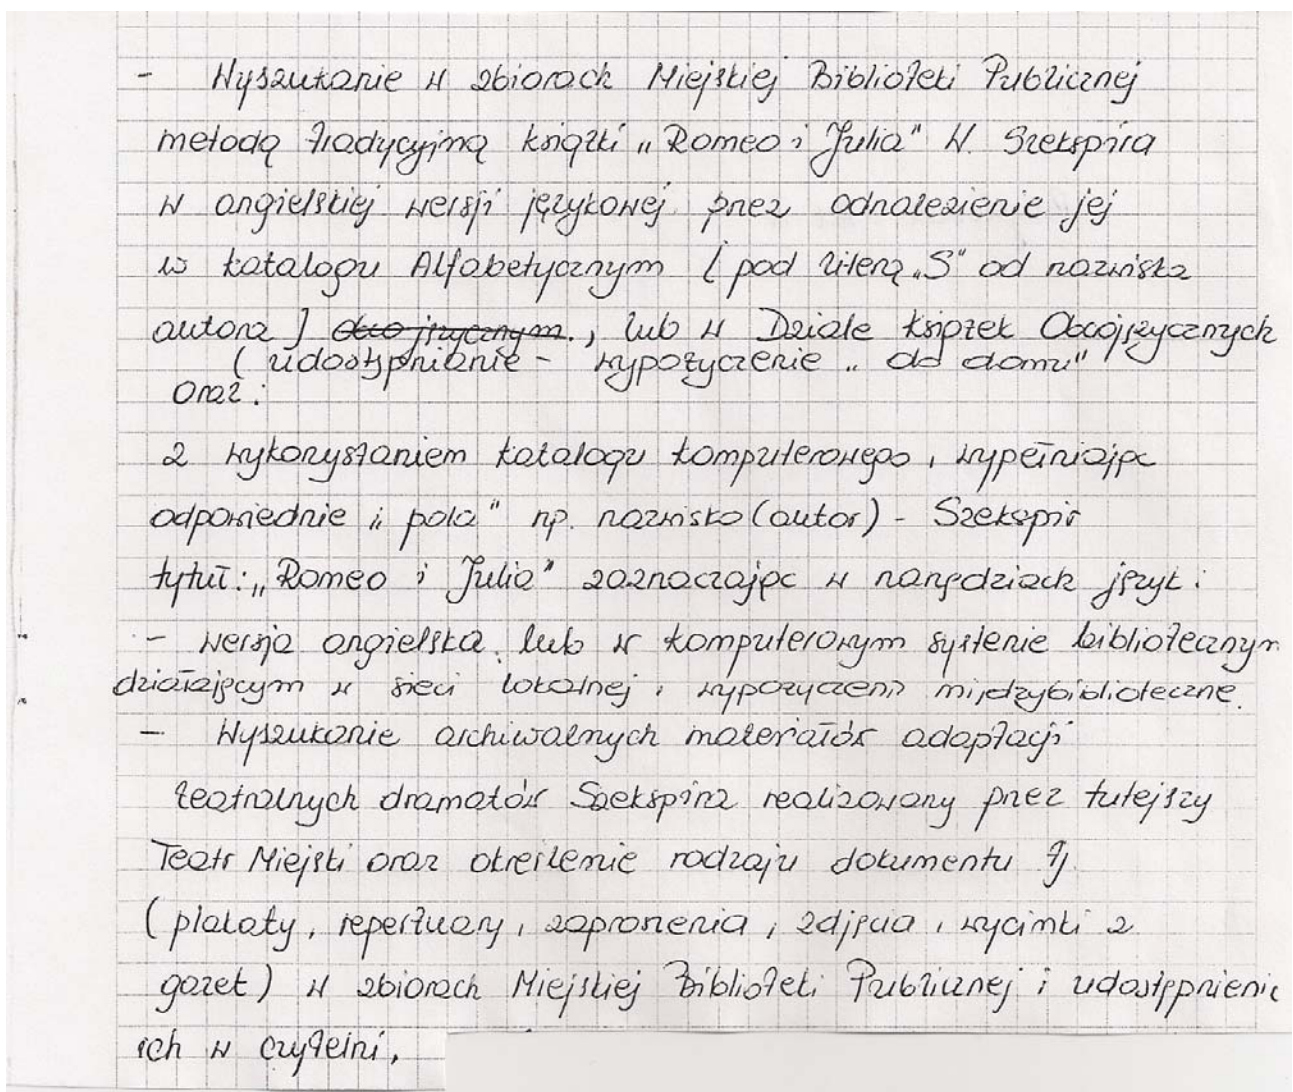 - Wyszukanie w zbiorach Miejskiej Biblioteki Publicznej
metodą tradycyjną książki „Romeo i Julia" W. Szekspira
w angielskiej wersji językowej przez odnalezienie jej
w katalogu Alfabetycznym (pod literą „S" od nazwiska
autora) obcojęzycznym., lub w Dziale książek Obcojęzycznych
(udostępnianie - wypożyczenie „do domu"
oraz:
z wykorzystaniem katalogu komputerowego, wypełniając
odpowiednie „pola" np. nazwisko (autor) - Szekspir
tytuł: „Romeo i Julia" zaznaczając w narzędziach język:
- wersja angielska, lub w komputerowym systemie bibliotecznym
działającym w sieci lokalnej, wypożyczeni międzybiblioteczne.
- Wyszukanie archiwalnych materiałów adaptacji
teatralnych dramatów Szekspira realizowany przez tutejszy
Teatr Miejski oraz określenie rodzaju dokumentu tj.
(plakaty, repertuary, zaproszenia, zdjęcia, wycinki z
gazet) w zbiorach Miejskiej Biblioteki Publicznej i udostępnienie
ich w czytelni.